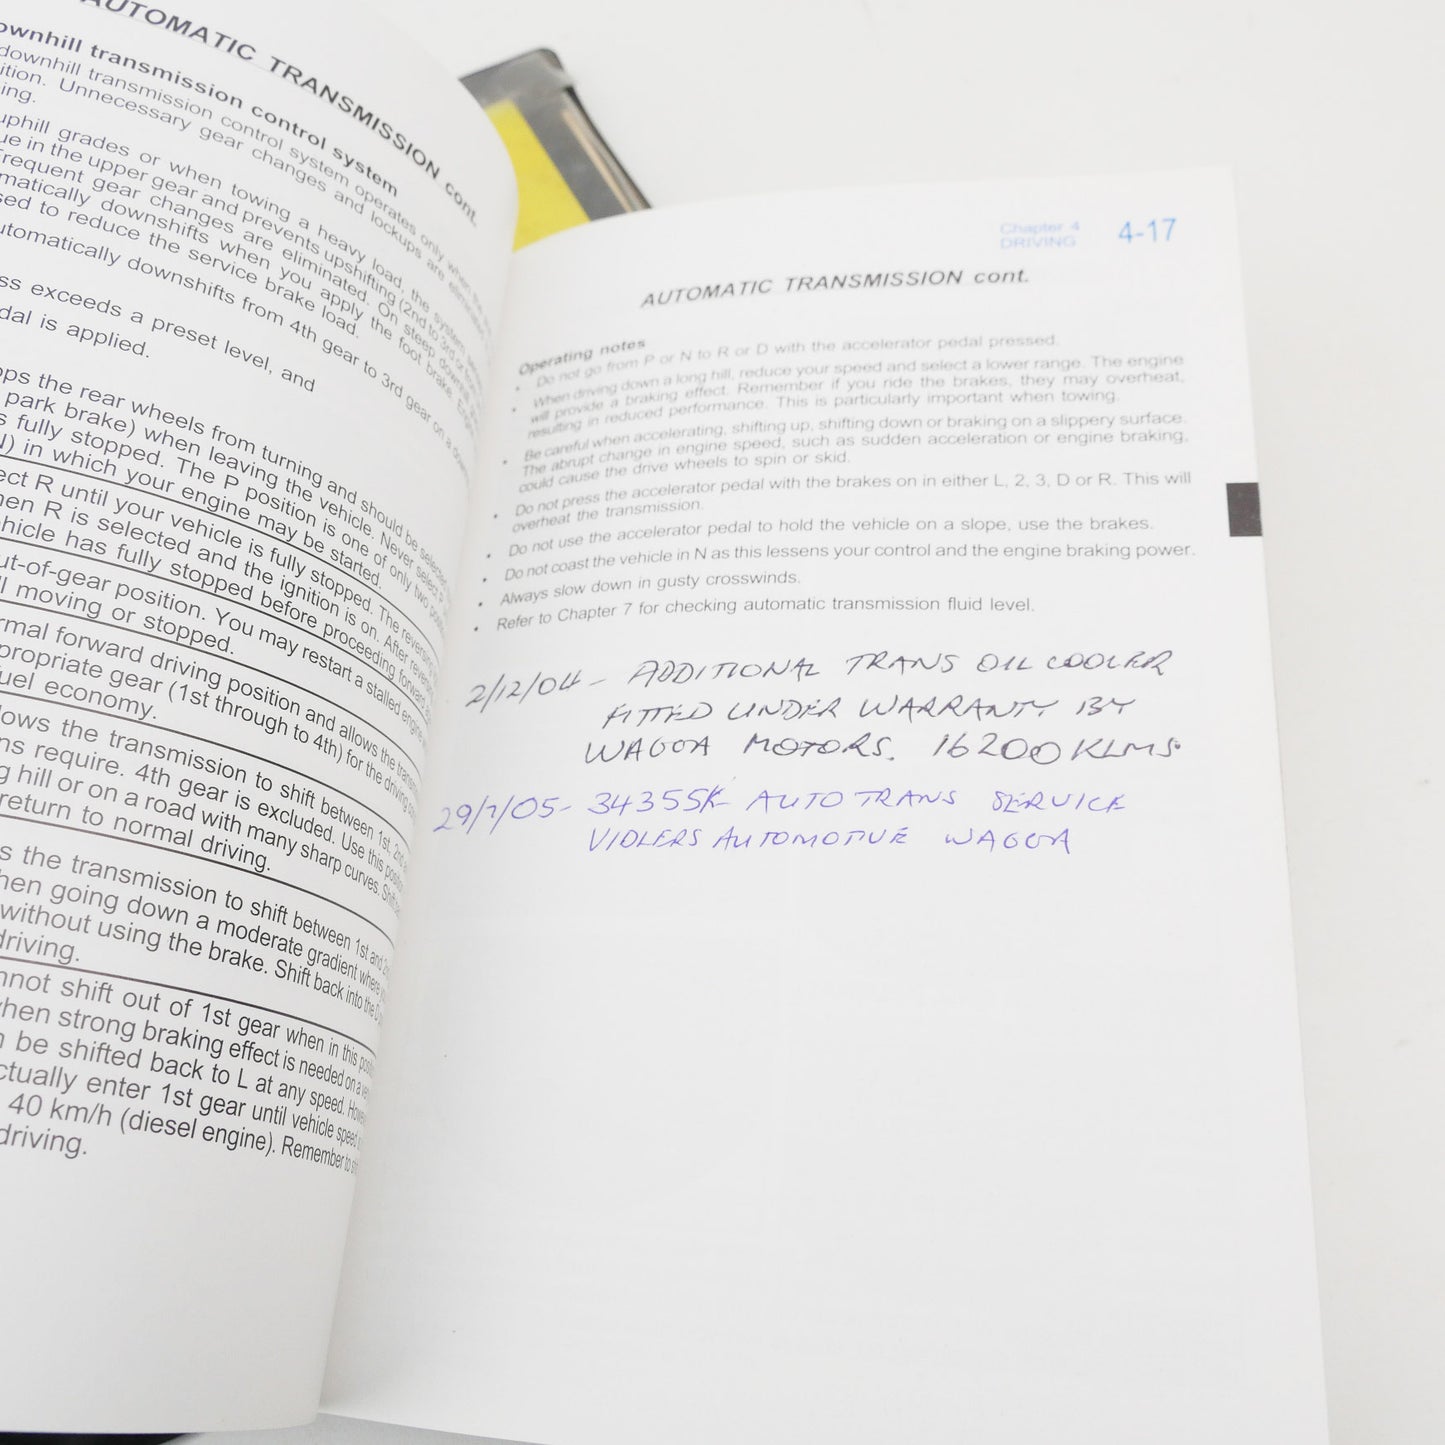 AUTOMATIC TRANSMISSION cont.
ownhill transmission control system
downhill transmission control system operates only when the
ition. Unnecessary gear changes and lockups are
ing.
uphill grades or when towing a heavy load, the system
ue in the upper gear and prevents upshifting (2nd to 3rd or
Frequent gear changes are eliminated. On steep down
matically downshifts when you apply the foot brake.
sed to reduce the service brake load.
utomatically downshifts from 4th gear to 3rd gear on a down
ss exceeds a preset level, and
dal is applied.
ops the rear wheels from turning and should be selected
park brake) when leaving the vehicle. Never select P
s fully stopped. The P position is one of only two
N) in which your engine may be started.
ect R until your vehicle is fully stopped. The reversing
hen R is selected and the ignition is on. After
ehicle has fully stopped before proceeding forward
ut-of-gear position. You may restart a stalled engine
ll moving or stopped.
rmal forward driving position and allows the
propriate gear (1st through to 4th) for the driving
uel economy.
lows the transmission to shift between 1st, 2nd
ns require. 4th gear is excluded. Use this
g hill or on a road with many sharp curves. Shift
return to normal driving.
s the transmission to shift between 1st and 2nd
hen going down a moderate gradient where
without using the brake. Shift back into the D
driving.
nnot shift out of 1st gear when in this
when strong braking effect is needed on a
n be shifted back to L at any speed.
ctually enter 1st gear until vehicle speed
40 km/h (diesel engine). Remember to
driving.
Chapter 4
DRIVING 4-17
AUTOMATIC TRANSMISSION cont.
Operating notes
• Do not go from P or N to R or D with the accelerator pedal pressed.
• When driving down a long hill, reduce your speed and select a lower range. The engine
will provide a braking effect. Remember if you ride the brakes, they may overheat,
resulting in reduced performance. This is particularly important when towing.
• Be careful when accelerating, shifting up, shifting down or braking on a slippery surface.
The abrupt change in engine speed, such as sudden acceleration or engine braking,
could cause the drive wheels to spin or skid.
• Do not press the accelerator pedal with the brakes on in either L, 2, 3, D or R. This will
overheat the transmission.
• Do not use the accelerator pedal to hold the vehicle on a slope, use the brakes.
• Do not coast the vehicle in N as this lessens your control and the engine braking power.
• Always slow down in gusty crosswinds.
• Refer to Chapter 7 for checking automatic transmission fluid level.
2/12/04 - ADDITIONAL TRANS OIL COOLER
FITTED UNDER WARRANTY BY
WAGGA MOTORS. 16200 KLMS.
29/7/05 - 34355K - AUTO TRANS SERVICE
VIDLERS AUTOMOTIVE WAGGA